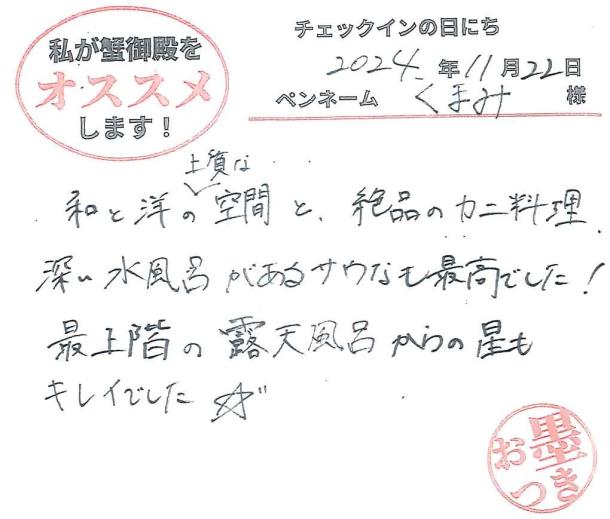 私が蟹御殿を
オススメ
します！
チェックインの日にち
2024年11月22日
ペンネーム くまみ 様
和と洋の上質な空間と、絶品のカニ料理、
深い水風呂があるサウなも最高でした！
最上階の露天風呂からの星も
キレイでした☆
お墨つき